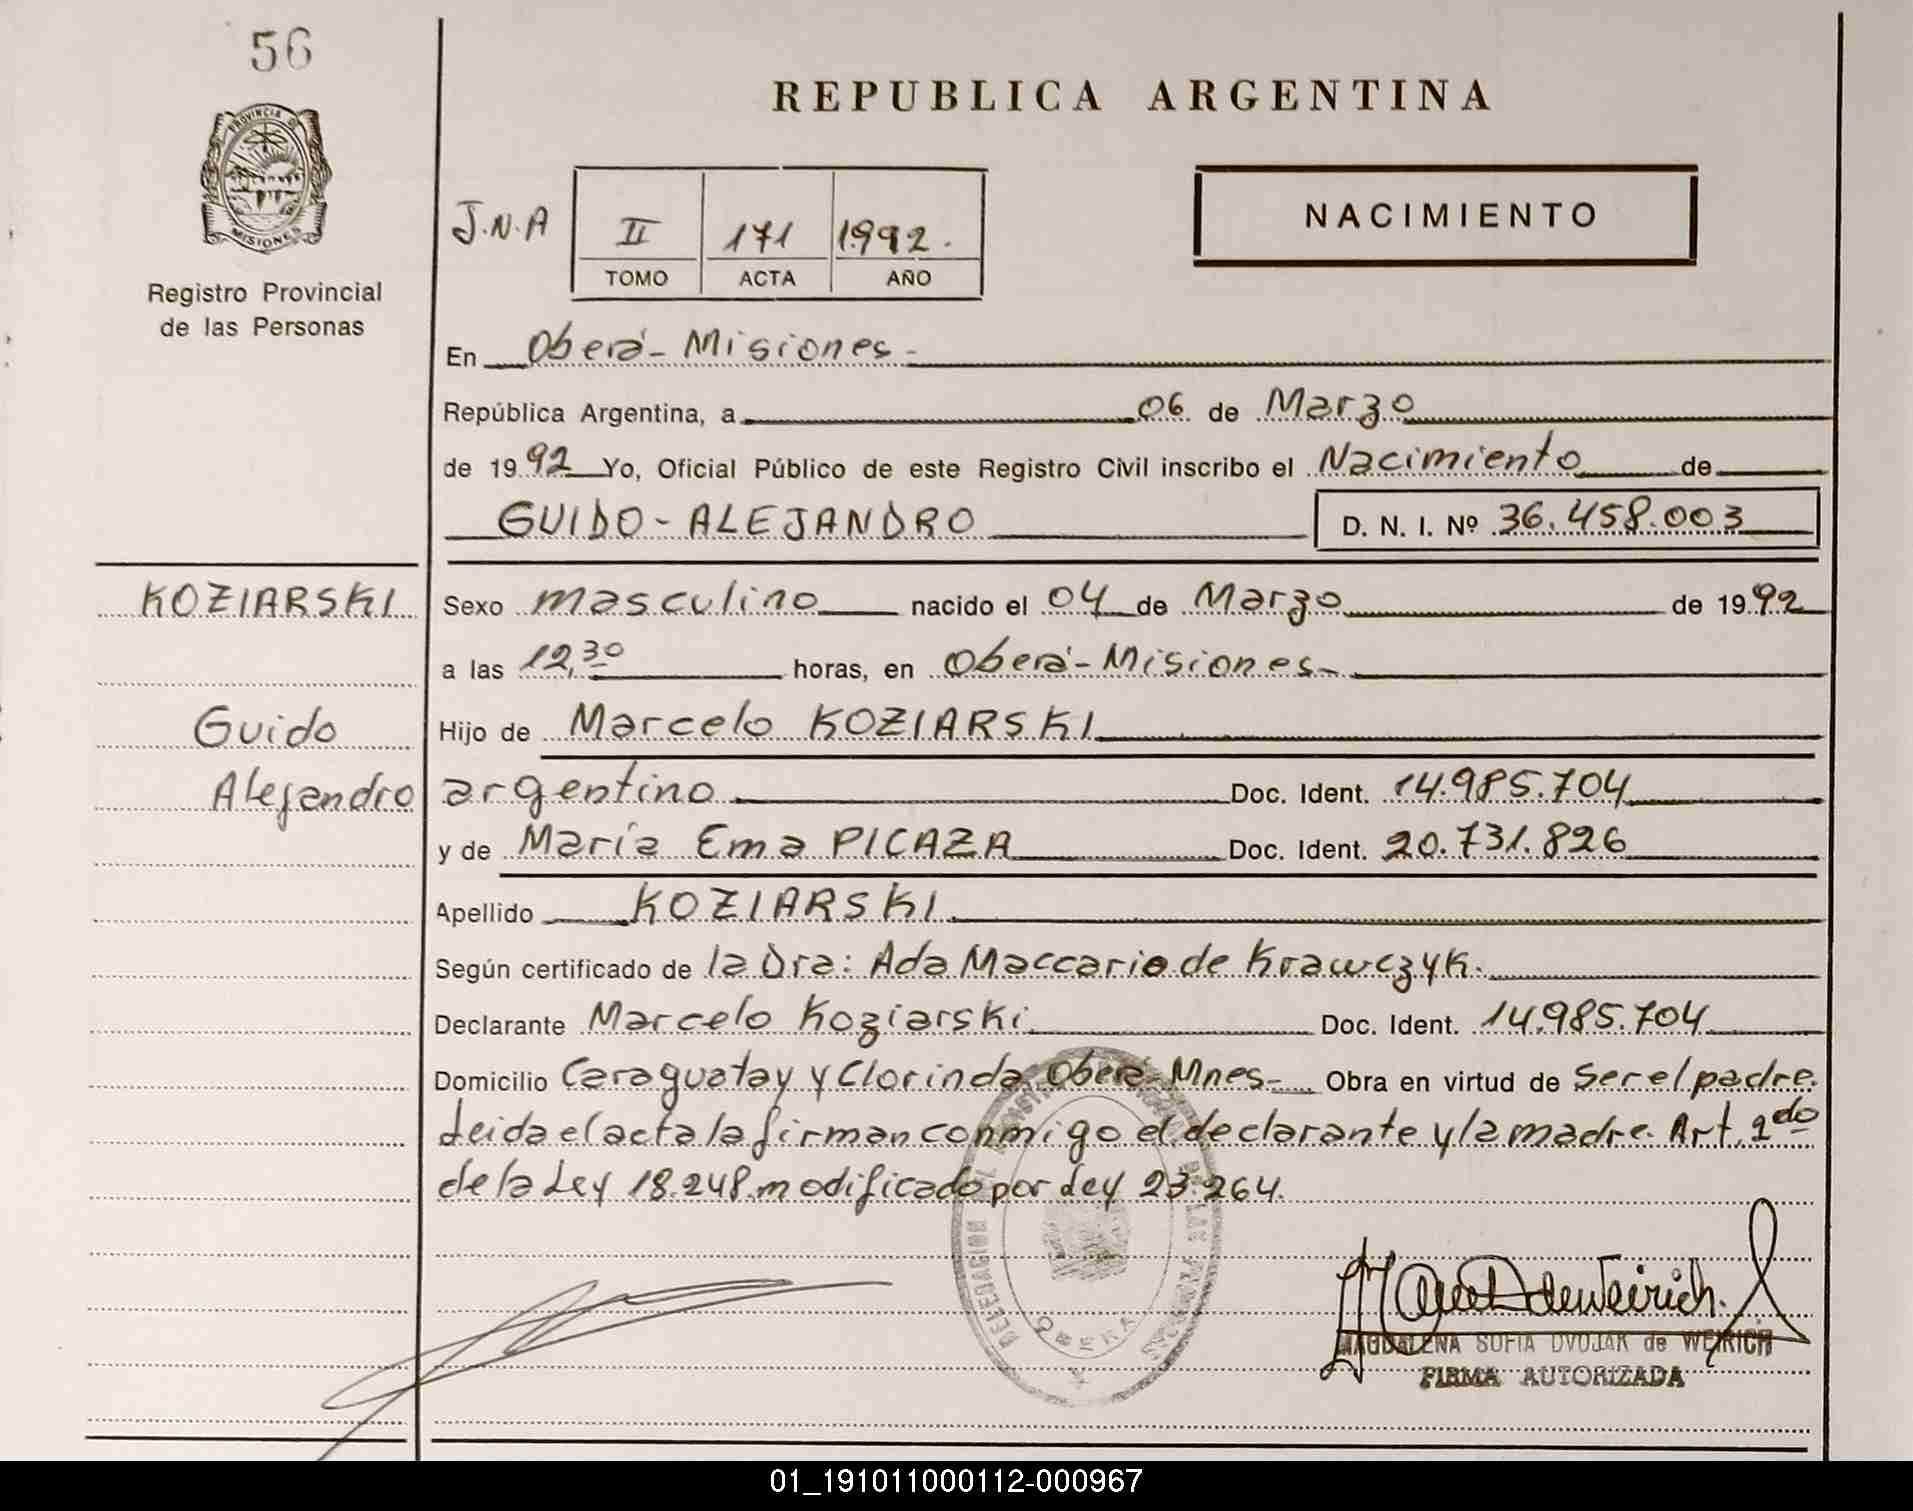 56
REPUBLICA ARGENTINA
PROVINCIA DE
MISIONES
Registro Provincial
de las Personas
J.N.A
II 171 1992.
TOMO ACTA AÑO
NACIMIENTO
En Oberá - Misiones -
República Argentina, a 06 de Marzo
de 1992 Yo, Oficial Público de este Registro Civil inscribo el Nacimiento de
GUIDO - ALEJANDRO D. N. I. Nº 36.458.003
KOZIARSKI
Guido
Alejandro
Sexo masculino nacido el 04 de Marzo de 1992
a las 12,30 horas, en Oberá - Misiones -
Hijo de Marcelo KOZIARSKI
argentino Doc. Ident. 14.985.704
y de María Ema PICAZA Doc. Ident. 20.731.826
Apellido KOZIARSKI
Según certificado de la Dra: Ada Maccario de Krawczyk.
Declarante Marcelo Koziarski Doc. Ident. 14.985.704
Domicilio Caraguatay y Clorinda, Oberá - Mnes - Obra en virtud de ser el padre.
Leida el acta la firman conmigo el declarante y la madre. Art. 2do
de la Ley 18.248 modificado por Ley 23.264.
DELEGACION DEL REGISTRO PROVINCIAL DE LAS PERSONAS
OBERA
MAGDALENA SOFIA DVOJAK de WEIRICH
FIRMA AUTORIZADA
01_191011000112-000967